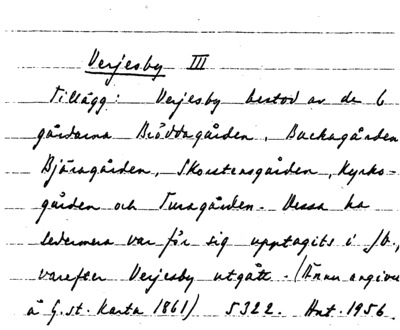 Verjesby III
Tillägg: Verjesby bestod av de 6
gårdarna Bröddagården, Backagården
Bjäragården, Skorstensgården, Kyrko-
gården och Turagården. Dessa ha
sedermera var för sig upptagits i jb.,
varefter Verjesby utgått. (Ännu angives
å G. st. Karta 1861) 5322. Ant. 1956.